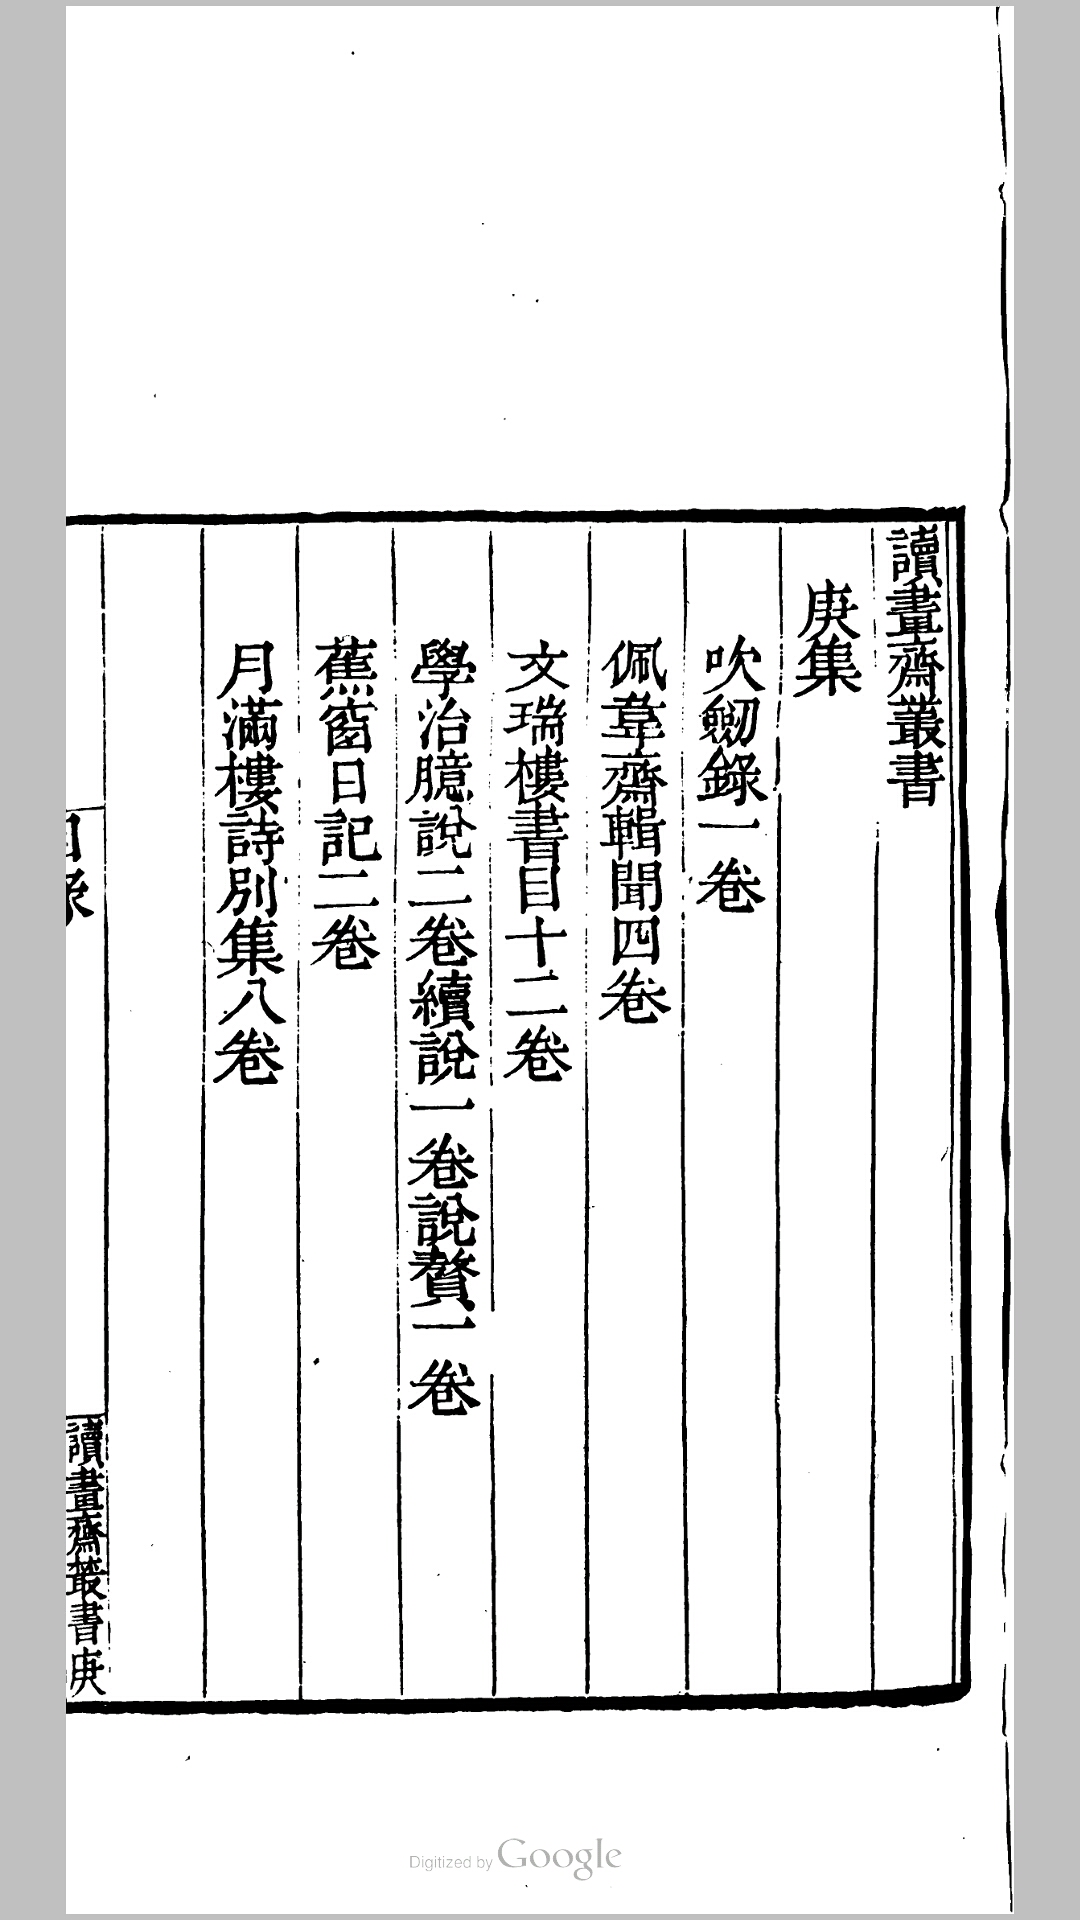 讀畫齋叢書
庚集
吹劒錄一卷
佩韋齋輯聞四卷
文瑞樓書目十二卷
學治臆說二卷續說一卷說贅一卷
蕉窗日記二卷
月滿樓詩別集八卷
目录
讀畫齋叢書庚
Digitized by Google